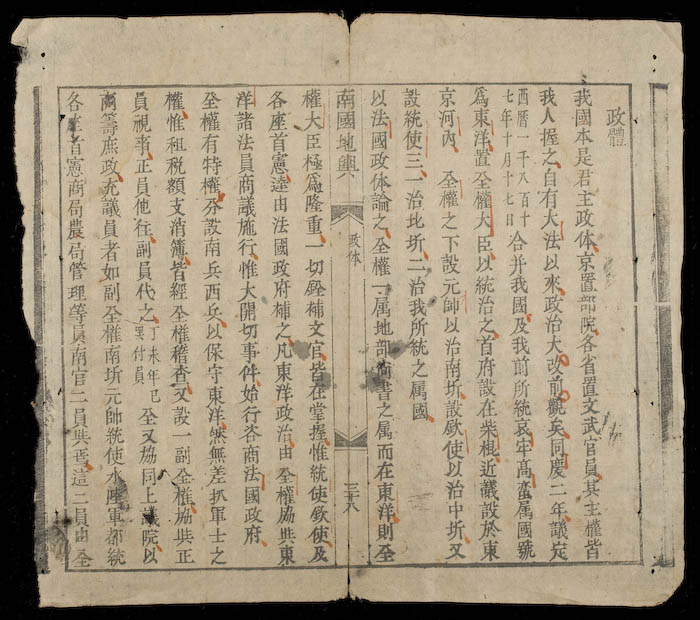 政體
我國本是君主政体京置部院各省置文武官員其主權皆
我人握之自有大法以來政治大改前觀矣同慶二年議定
西曆一千八百十七年十月十七日合并我國及我前所統哀牢高蛮属國號
爲東洋置全權大臣以統治之首府設在柴棍近議設於東
京河內全權之下設元帥以治南圻設欽使以治中圻又
設統使三一治北圻二治我所統之属國
以法國政体論之全權一属地部尚書之属而在東洋則全
南國地輿
政体
三十八
權大臣極爲隆重一切銓補文官皆在掌握惟統使欽使及
各座首憲遠由法國政府補之凡東洋政治由全權協與東
洋諸法員商議施行惟大開切事件始行咨商法國政府
全權有特權分設南兵西兵以保守東洋無差扒軍士之
權惟租税額支消簿皆經全權稽查又設一副全權協与正
員視事正員他往副員代之丁未年已罢付員全又協同上議院以
商筹庶政充議員者如副全權南圻元帥統使水陸軍都統
各座首憲商局農局管理等員南官二員共焉這二員由全